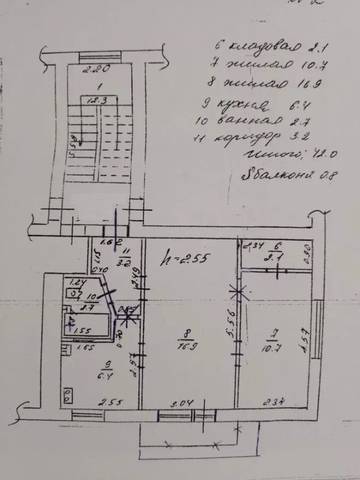 6 кладовая 2.1
7 жилая 10.7
8 жилая 16.9
9 кухня 6.4
10 ванная 2.7
11 коридор 3.2
Итого: 42.0
Sбалкона 0.8
2.20
1
12.3
1.62
11
3.2
1.15
0.40
2.49
h=2.55
2.34
6
2.1
0.90
1.24
0.7
10
2.7
1.55
1.65
5.56
8
16.9
7
10.7
4.57
9
6.4
2.97
2.55
3.04
2.34